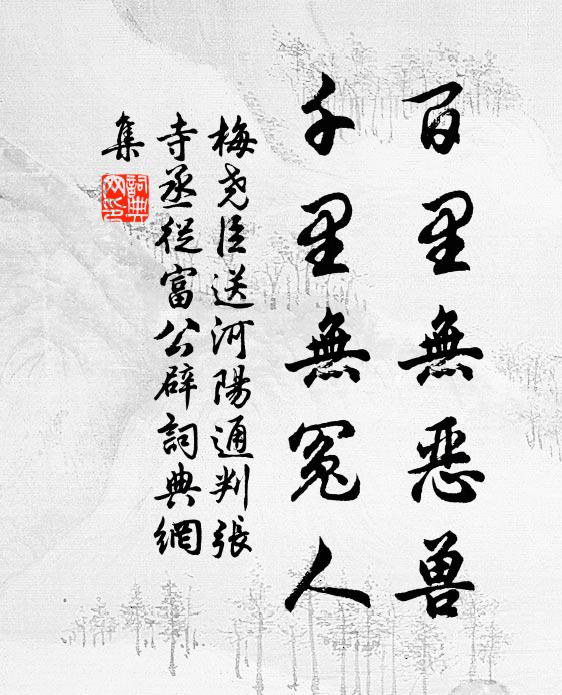 百里無恶兽
千里無冤人
梅尧臣送河陽通判張
寺丞從富公辟詞典網
集
詞典
网印